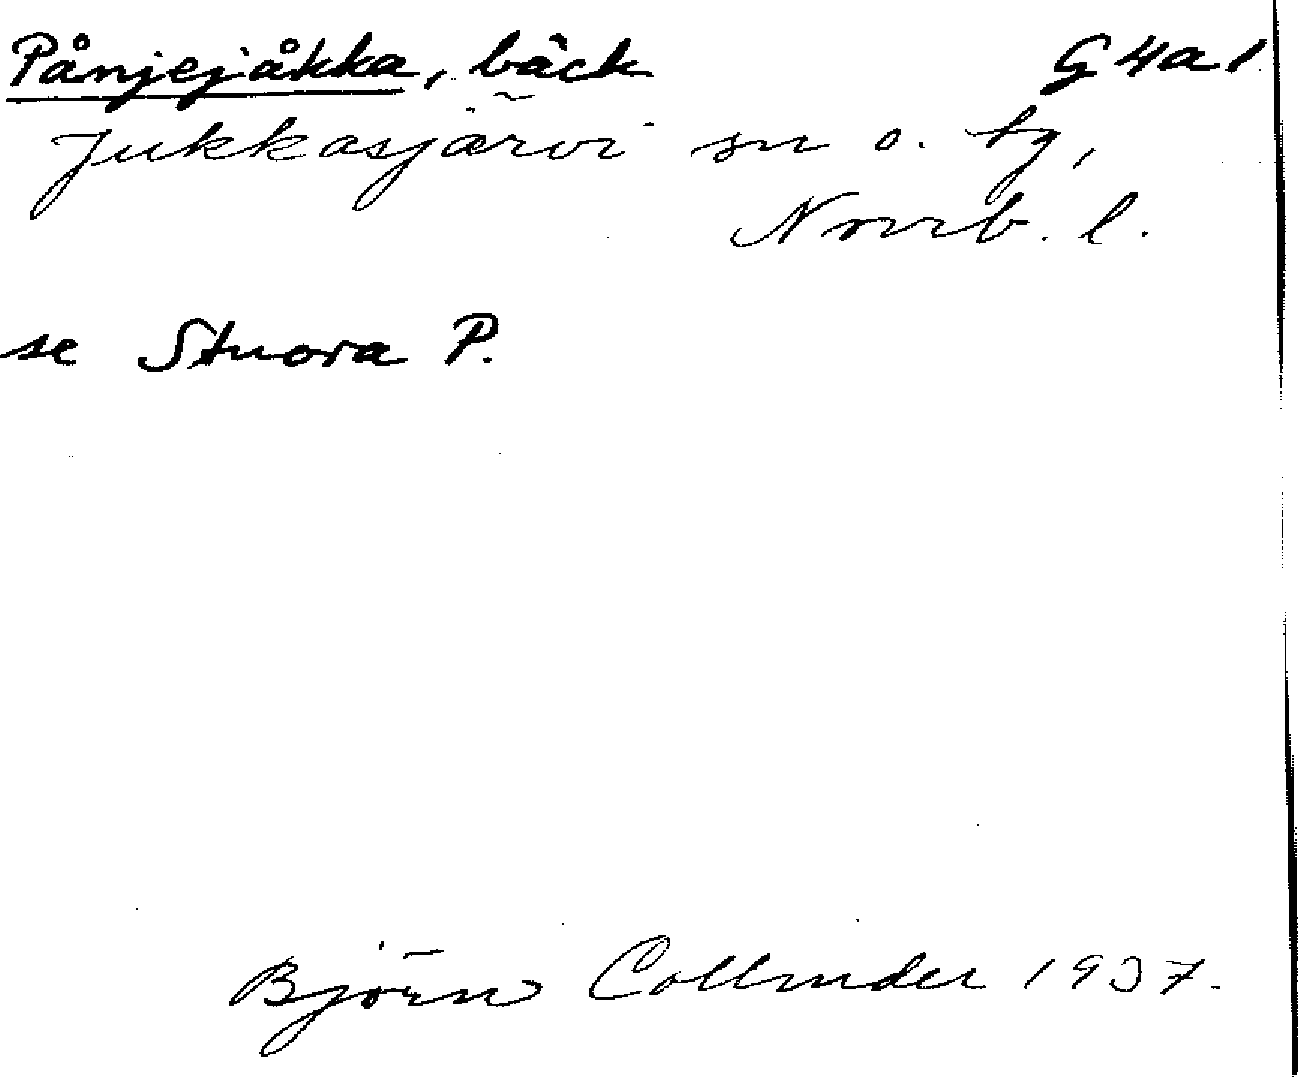 Pånjejåkka, bäck G4a1
Jukkasjärvi sn o. tg,
Norrb. l.
se Stuora P.
Björn Collinder 1937.